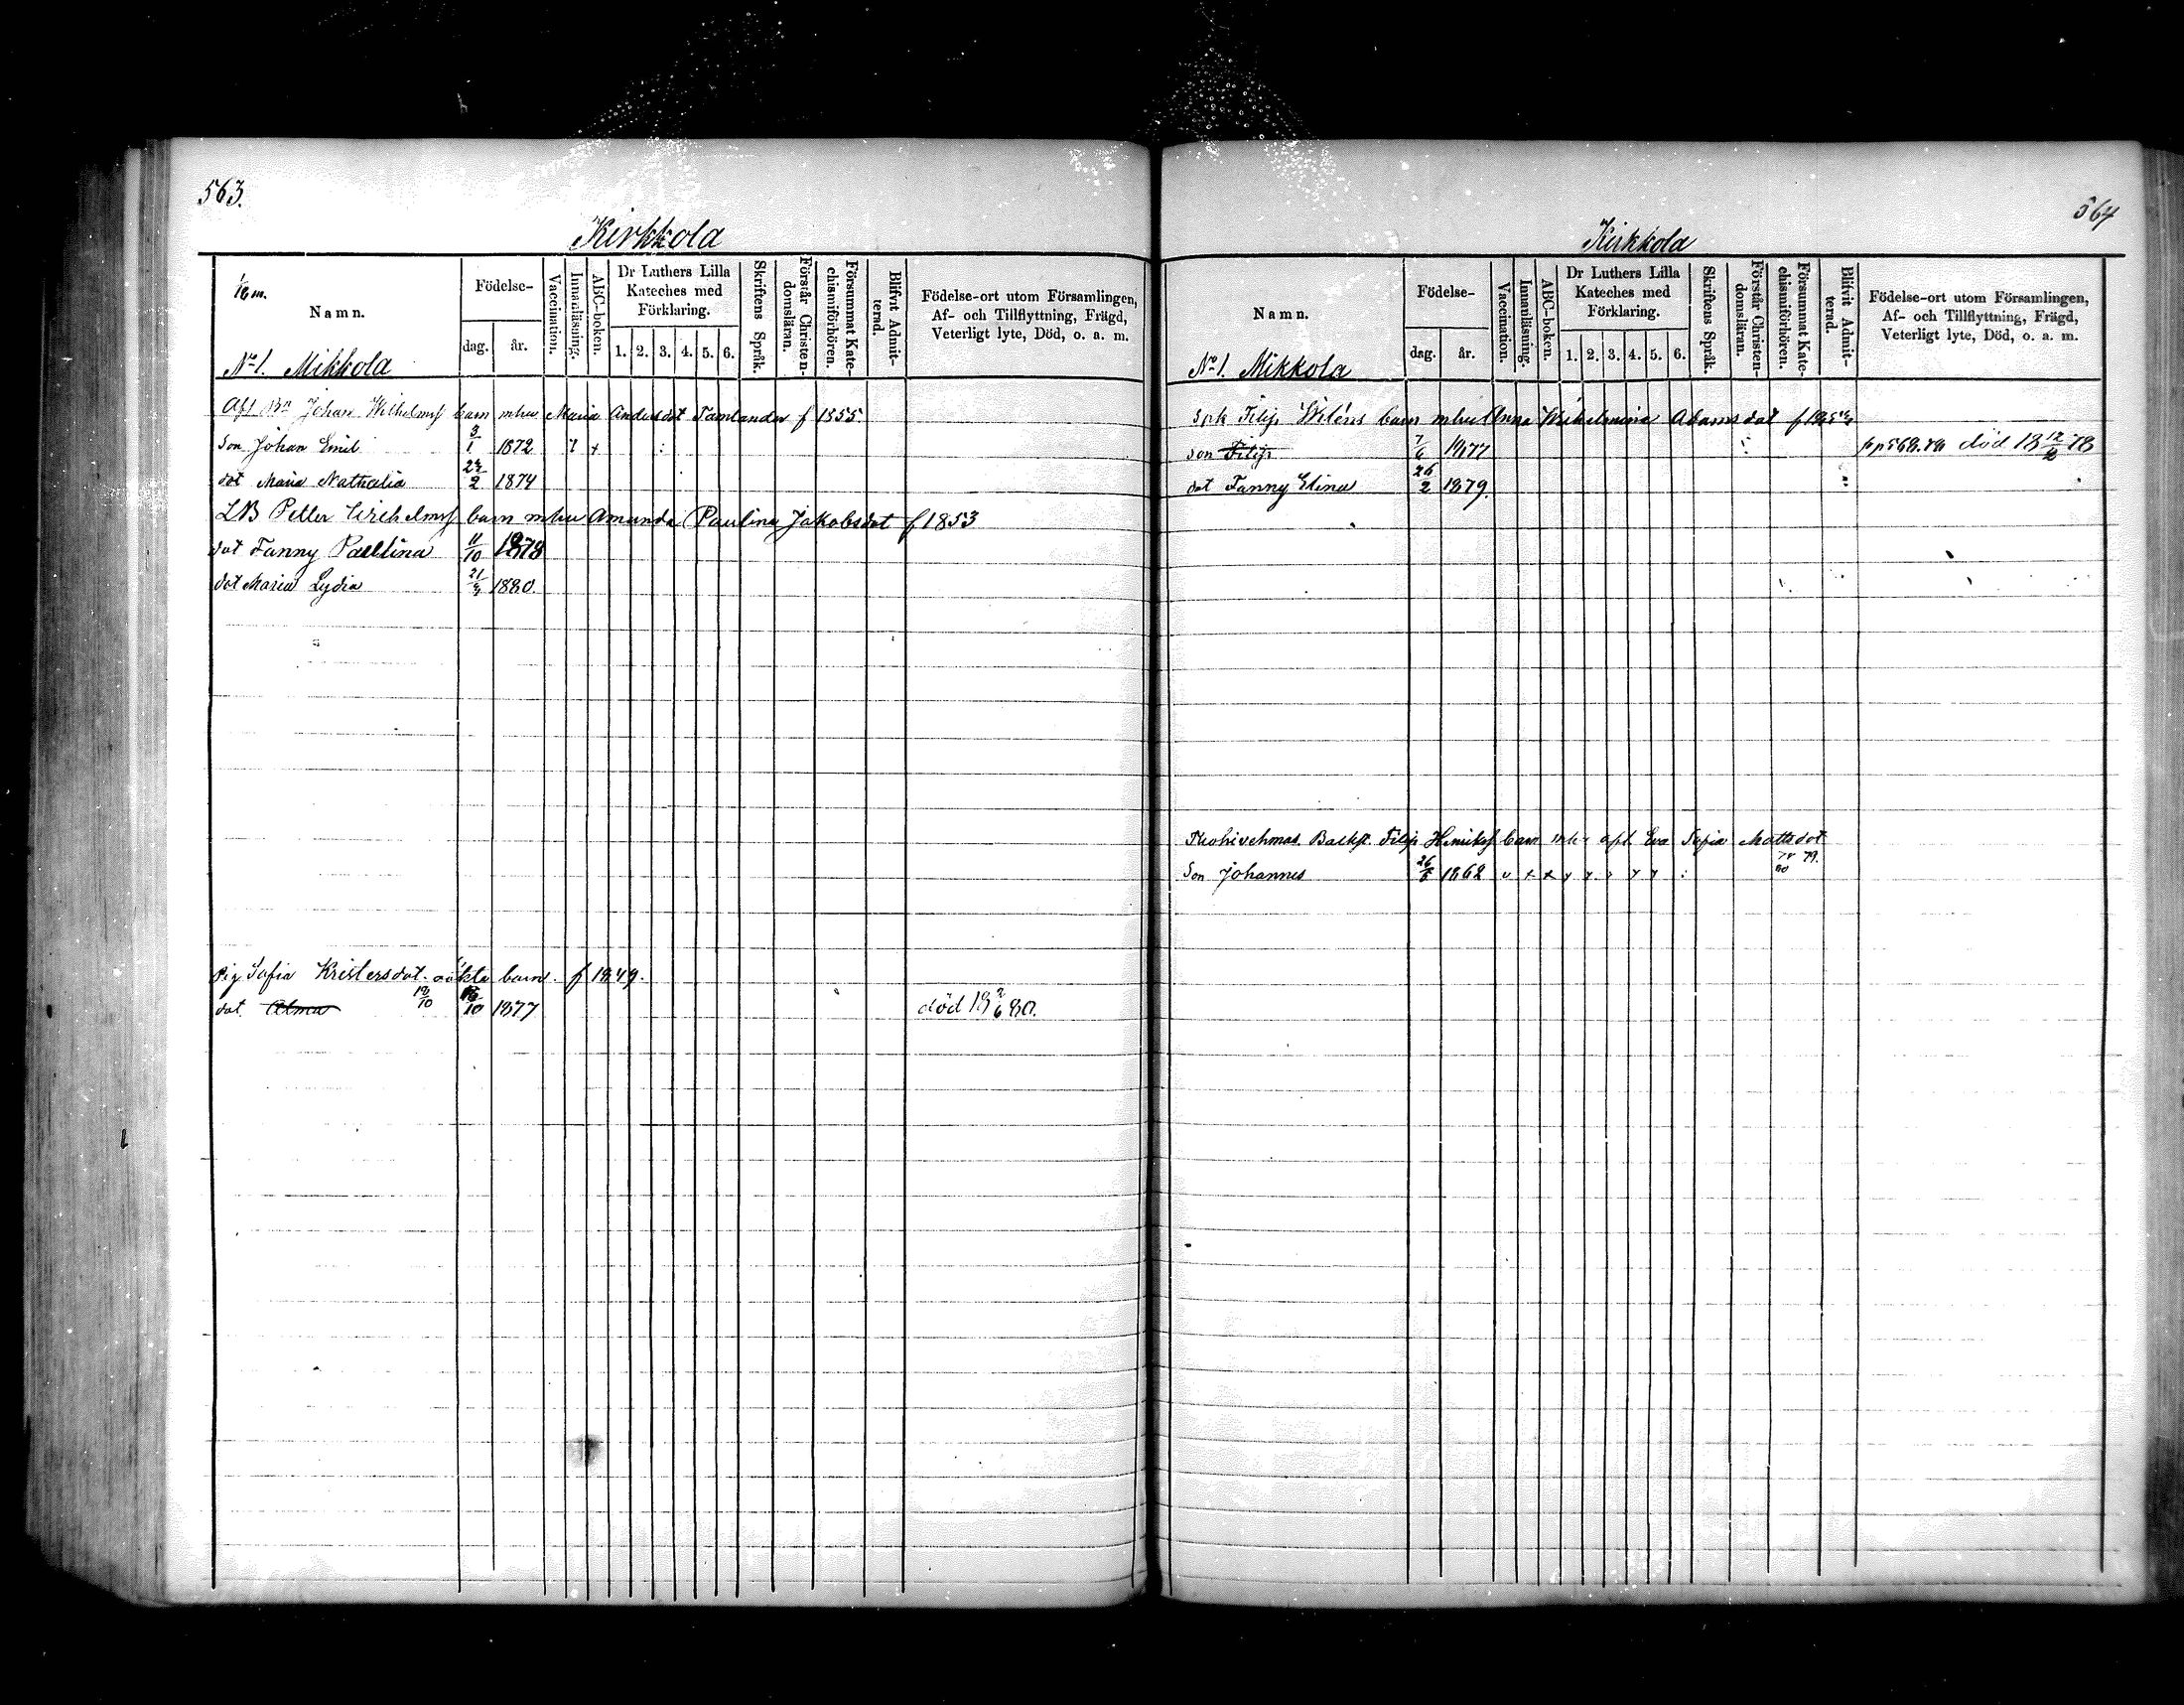 563.
Kirkkola
Namn.
Födelse-
dag. år.
Vaccination.
Innanläsning.
ABC-boken.
Dr Luthers Lilla Kateches med Förklaring.
1. 2. 3. 4. 5. 6.
Skriftens Språk.
Förstår Christen-domsläran.
Försummat Kate-chismiförhören.
Blifvit Admit-terad.
Födelse-ort utom Församlingen,
Af- och Tillflyttning, Frägd,
Veterligt lyte, Död, o. a. m.
No 1. Mikkola
Johan Wilhelmsf barn mhu Maria Andersdot Tamlander f 1855.
Son Johan Emil 3/1 1872
dot Maria Nathalia 2 1874
LB Petter Wilhelmsf barn mhu Amanda Paulina Jakobsdot f 1853
dot Fanny Paulina 11/10 1878
dot Maria Lydia 21 1880.
Pig Sofia Kristersdot. oäkta barn. f 1849.
dot Alma 18/10 10 1877 död 18 2/6 80.
564
Kirkkola
Namn.
Födelse-
dag. år.
Vaccination.
Innanläsning.
ABC-boken.
Dr Luthers Lilla Kateches med Förklaring.
1. 2. 3. 4. 5. 6.
Skriftens Språk.
Förstår Christen-domsläran.
Försummat Kate-chismiförhören.
Blifvit Admit-terad.
Födelse-ort utom Församlingen,
Af- och Tillflyttning, Frägd,
Veterligt lyte, Död, o. a. m.
No 1. Mikkola
Spk Filip Wiléns barn mhu Anna Wilhelmina Adamsdot
son Filip 7/6 1877 död 18 12 78
dot Fanny Elina 26/2 1879.
Filip Henriksf barn mhu Eva Sofia Mattsdot
Son Johannes 26 1862 79.
80